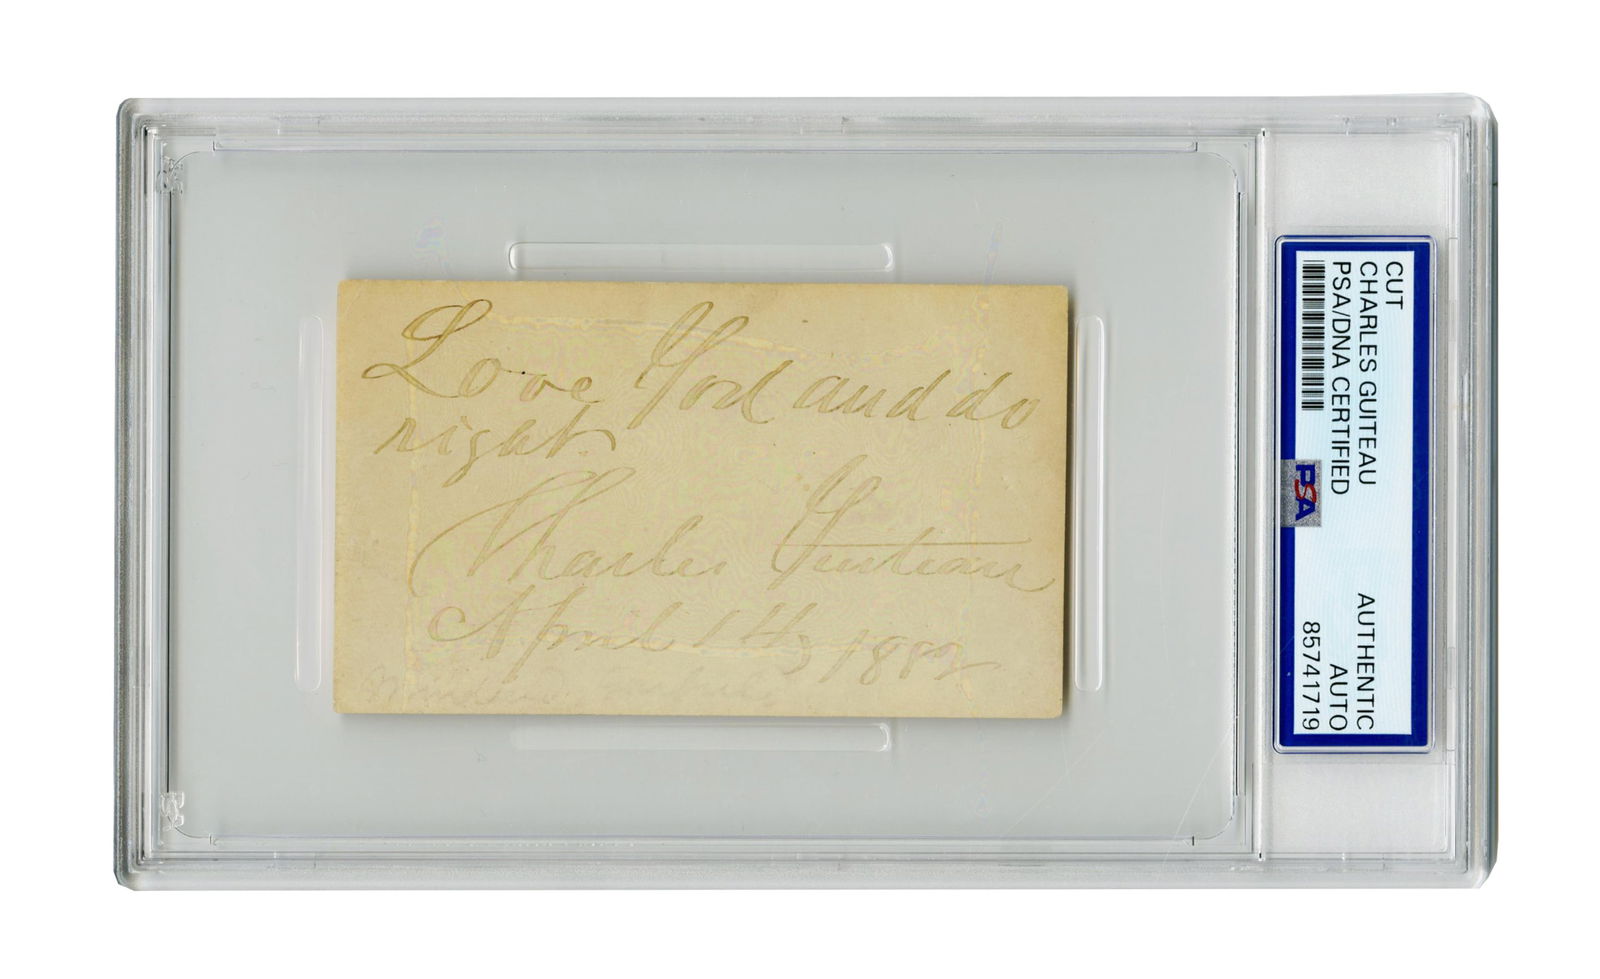 Love God and do
right.
Charles Guiteau
April 14, 1882
CUT
CHARLES GUITEAU
PSA/DNA CERTIFIED
AUTHENTIC
AUTO
85741719
PSA